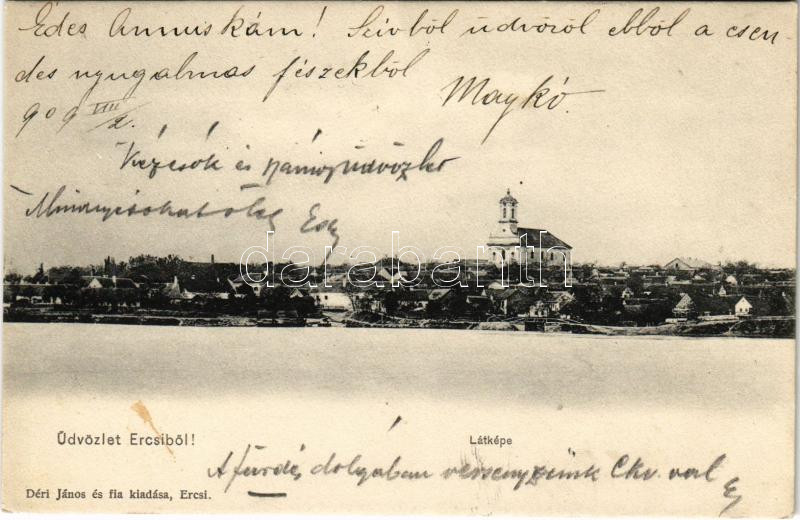 Édes Annuskám! Szívből üdvözöl ebből a csen-
des nyugalmas fészekből
Maykó.
909 VIII/2.
Kézcsók és üdvözlet
darabanth.com
Üdvözlet Ercsiből!
Látképe
A fürdés dolgában versenyzünk
Déri János és fia kiadása, Ercsi.